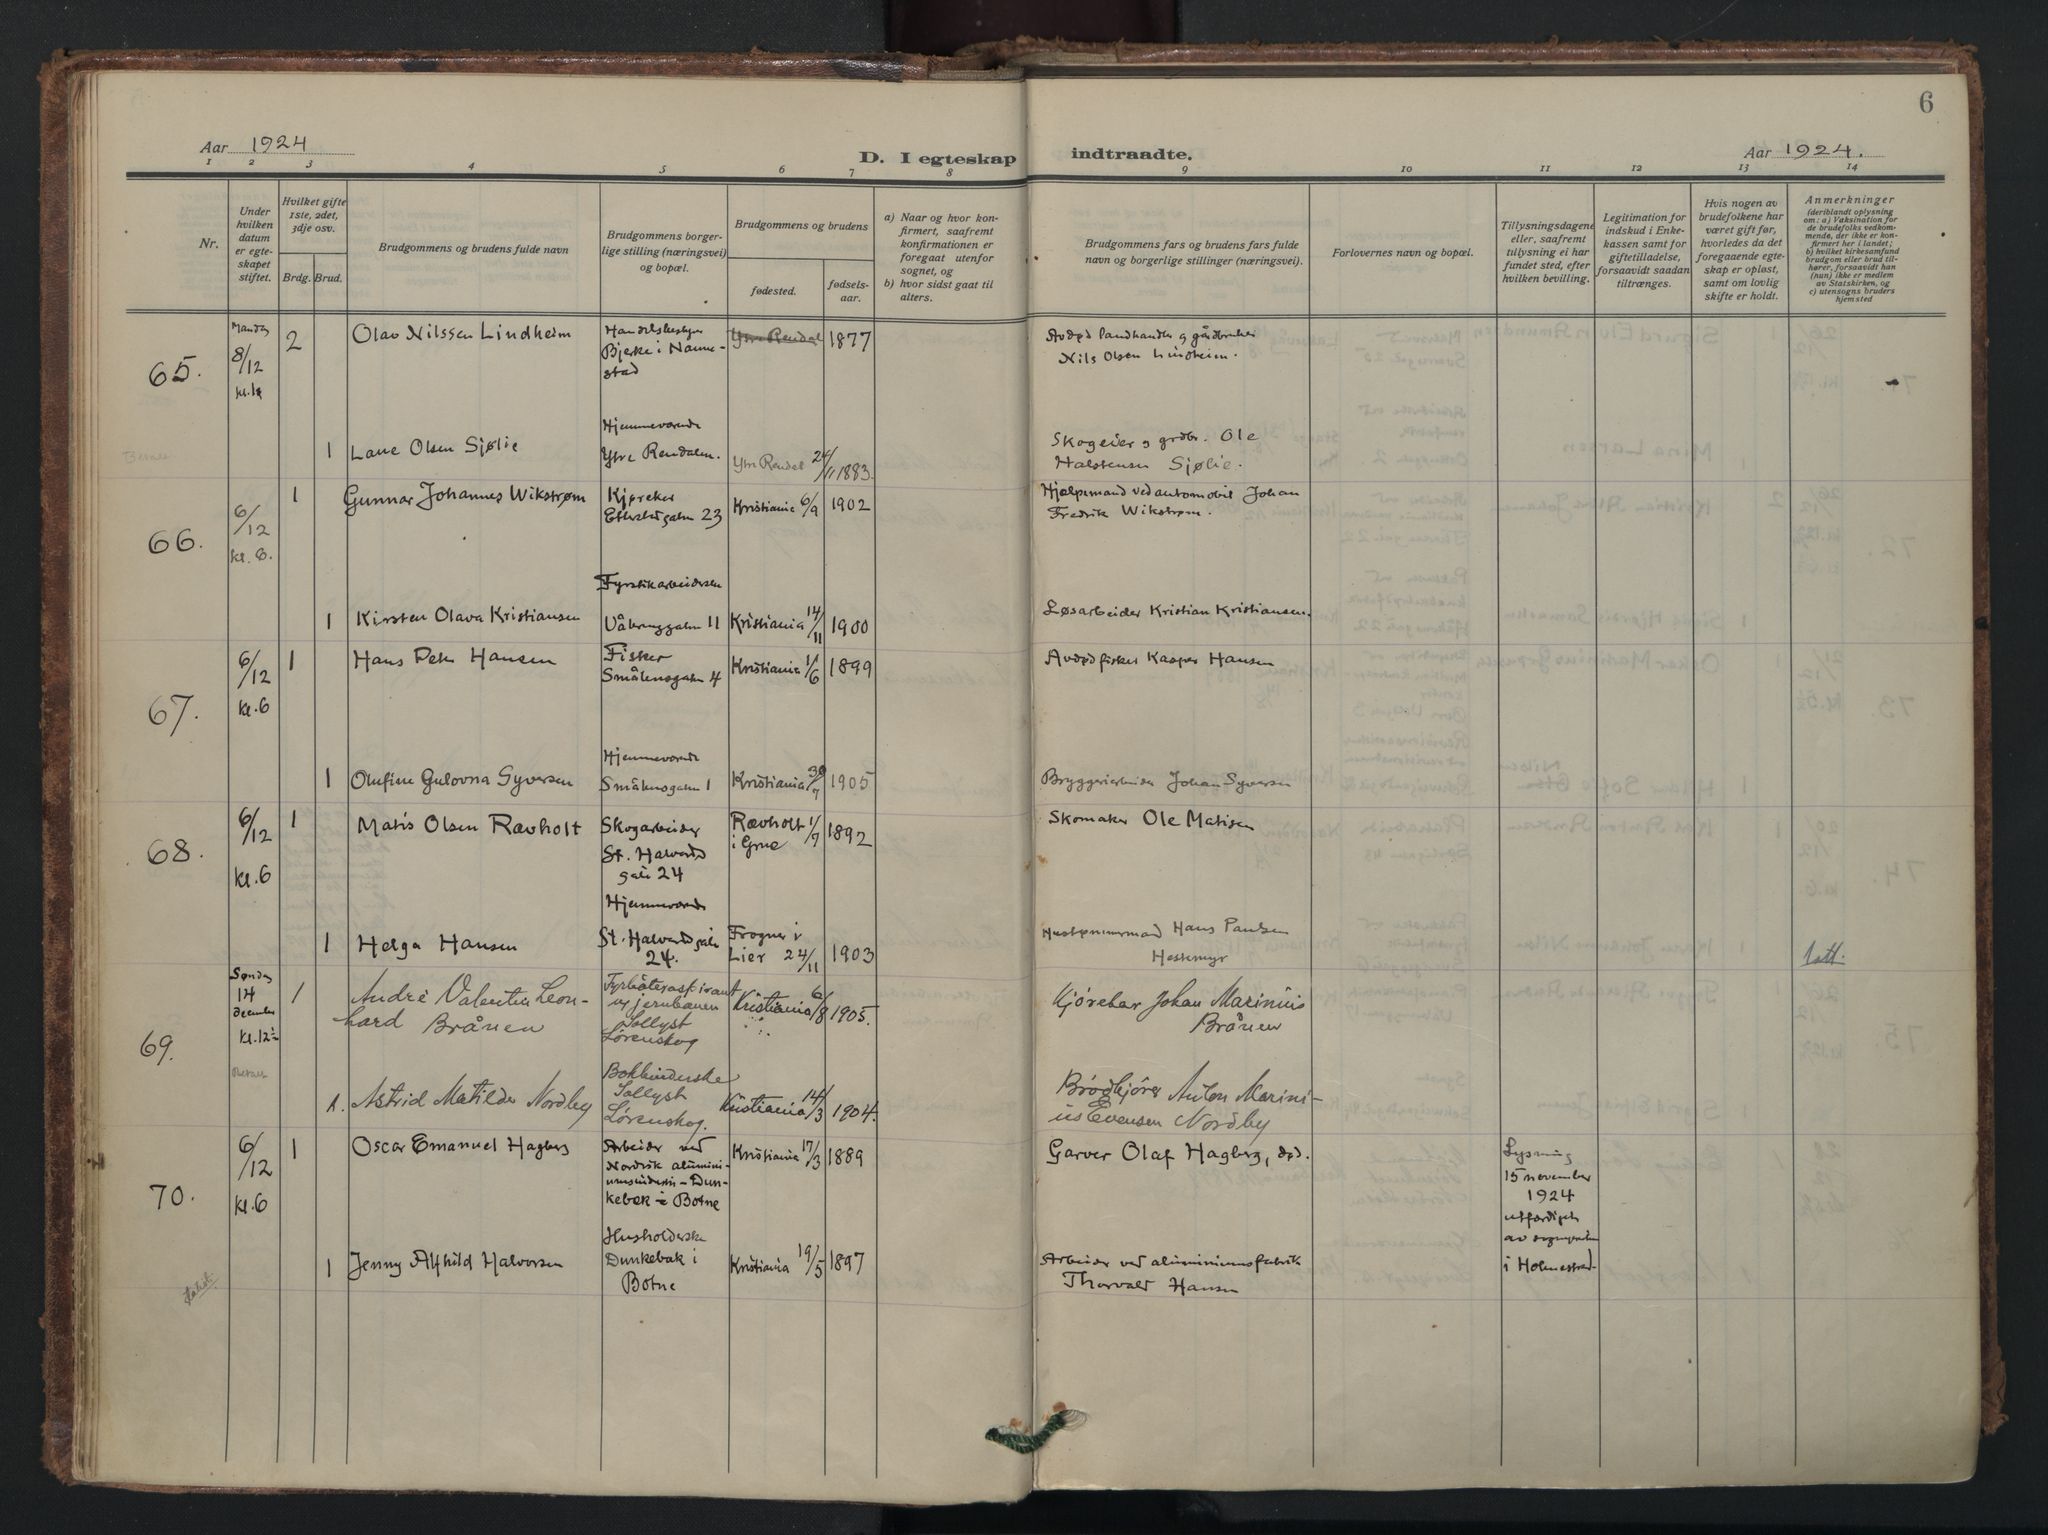 6
Aar 1924
D. I egteskap indtraadte.
Aar 1924.
1 2 3 4 5 6 7 8 9 10 11 12 13 14
Nr.
Under hvilken datum er egteskapet stiftet.
Hvilket gifte 1ste, 2det, 3dje osv.
Brdg. Brud.
Brudgommens og brudens fulde navn
Brudgommens borgerlige stilling (næringsvei) og bopæl.
Brudgommens og brudens
fødested.
fødselsaar.
a) Naar og hvor konfirmert, saafremt konfirmationen er foregaat utenfor sognet, og
b) hvor sidst gaat til alters.
Brudgommens fars og brudens fars fulde navn og borgerlige stillinger (næringsvei).
Forlovernes navn og bopæl.
Tillysningsdagene eller, saafremt tillysning ei har fundet sted, efter hvilken bevilling.
Legitimation for indskud i Enkekassen samt for giftetilladelse, forsaavidt saadan tiltrænges.
Hvis nogen av brudefolkene har været gift før, hvorledes da det foregaaende egteskap er opløst, samt om lovlig skifte er holdt.
Anmerkninger
(deriblandt oplysning om: a) Vaksination for de brudefolks vedkommende, der ikke er konfirmert her i landet; b) hvilket kirkesamfund brudgom eller brud tilhører, forsaavidt han (hun) ikke er medlem av Statskirken, og c) utensogns bruders hjemsted
65.
Mandag
8/12
2
Olav Nilssen Lindheim
Handelsbestyrer
Bjerke i Nannestad
Ytre Rendal
1877
Avdød landhandler og gårdbruker
Nils Olsen Lindheim.
1
Olsen Sjølie
Hjemmeværende
Ytre Rendalen.
Ytre Rendal
24/11 1883.
Skogeier og grdbr. Ole
Halstensen Sjølie.
66.
6/12
kl. 6.
1
Gunnar Johannes Wikstrøm
Kjøreker
23
Kristiania 6/9
1902
Hjælpemand ved automobil Johan
Fredrik Wikstrøm.
1
Kirsten Olava Kristiansen
Fyrstikarbeiderske
11
Kristiania 14/11
1900
Løsarbeider Kristian Kristiansen.
67.
6/12
kl. 6
1
Hans Peter Hansen
Fisker
Smålensgaten 4
Kristiania 1/6
1899
Avdød fisker Kasper Hansen
1
Olufine Gulovna Syversen
Hjemmeværende
Smålensgaten 1
Kristiania 30/7
1905
Bryggeriarbeider Johan Syversen
68.
6/12
kl. 6
1
Matis Olsen Rævholt
Skogarbeider
St. Halvards
gate 24
Rævholt
i Grue 1/7
1892
Skomaker Ole Matisen
1
Helga Hansen
Hjemmeværende
St. Halvards gate
24.
Frogner i
Lier 24/11
1903
Hustømmermand Hans Paulsen
Hestemyr
69.
Søndag
14
december
kl. 12½
1
André Valentin Leonhard Brånen
Fyrbøteraspirant
v/ jernbanen
Sollyst
Lørenskog
Kristiania 6/8
1905.
Kjørekar Johan Marinius
Brånen
1.
Astrid Matilde Nordby
Bokbinderske
Sollyst
Lørenskog.
Kristiania 14/3
1904.
Brødkjører Anton Marinius Evensen Nordby
70.
6/12
kl. 6
1
Oscar Emanuel Hagberg
Arbeider ved
Nordisk aluminiumsindustri – Dunkebæk i Botne
Kristiania 17/3
1889
Garver Olaf Hagberg, død.
Lysning
15 november
1924
utfærdiget
av sognepresten
i Holmestrand
1
Jenny Alfhild Halvorsen
Husholderske
Dunkebæk i
Botne
Kristiania 19/5
1897
Arbeider ved aluminiumsfabrik
Thorvald Hansen